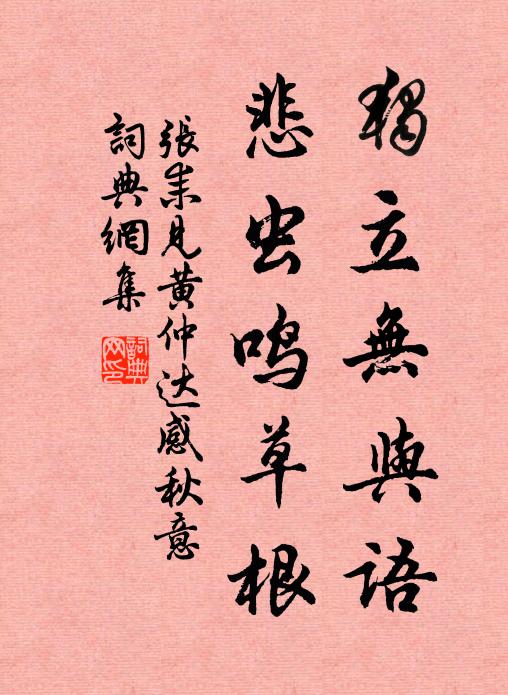 獨立無與語
悲虫鳴草根
張耒見黄仲达感秋意
詞典網集
詞典網印